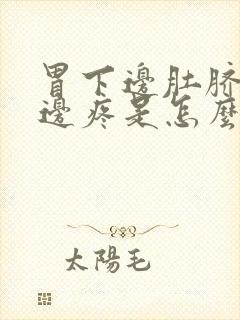 胃下邊肚脐
邊疼是怎麽
太陽毛